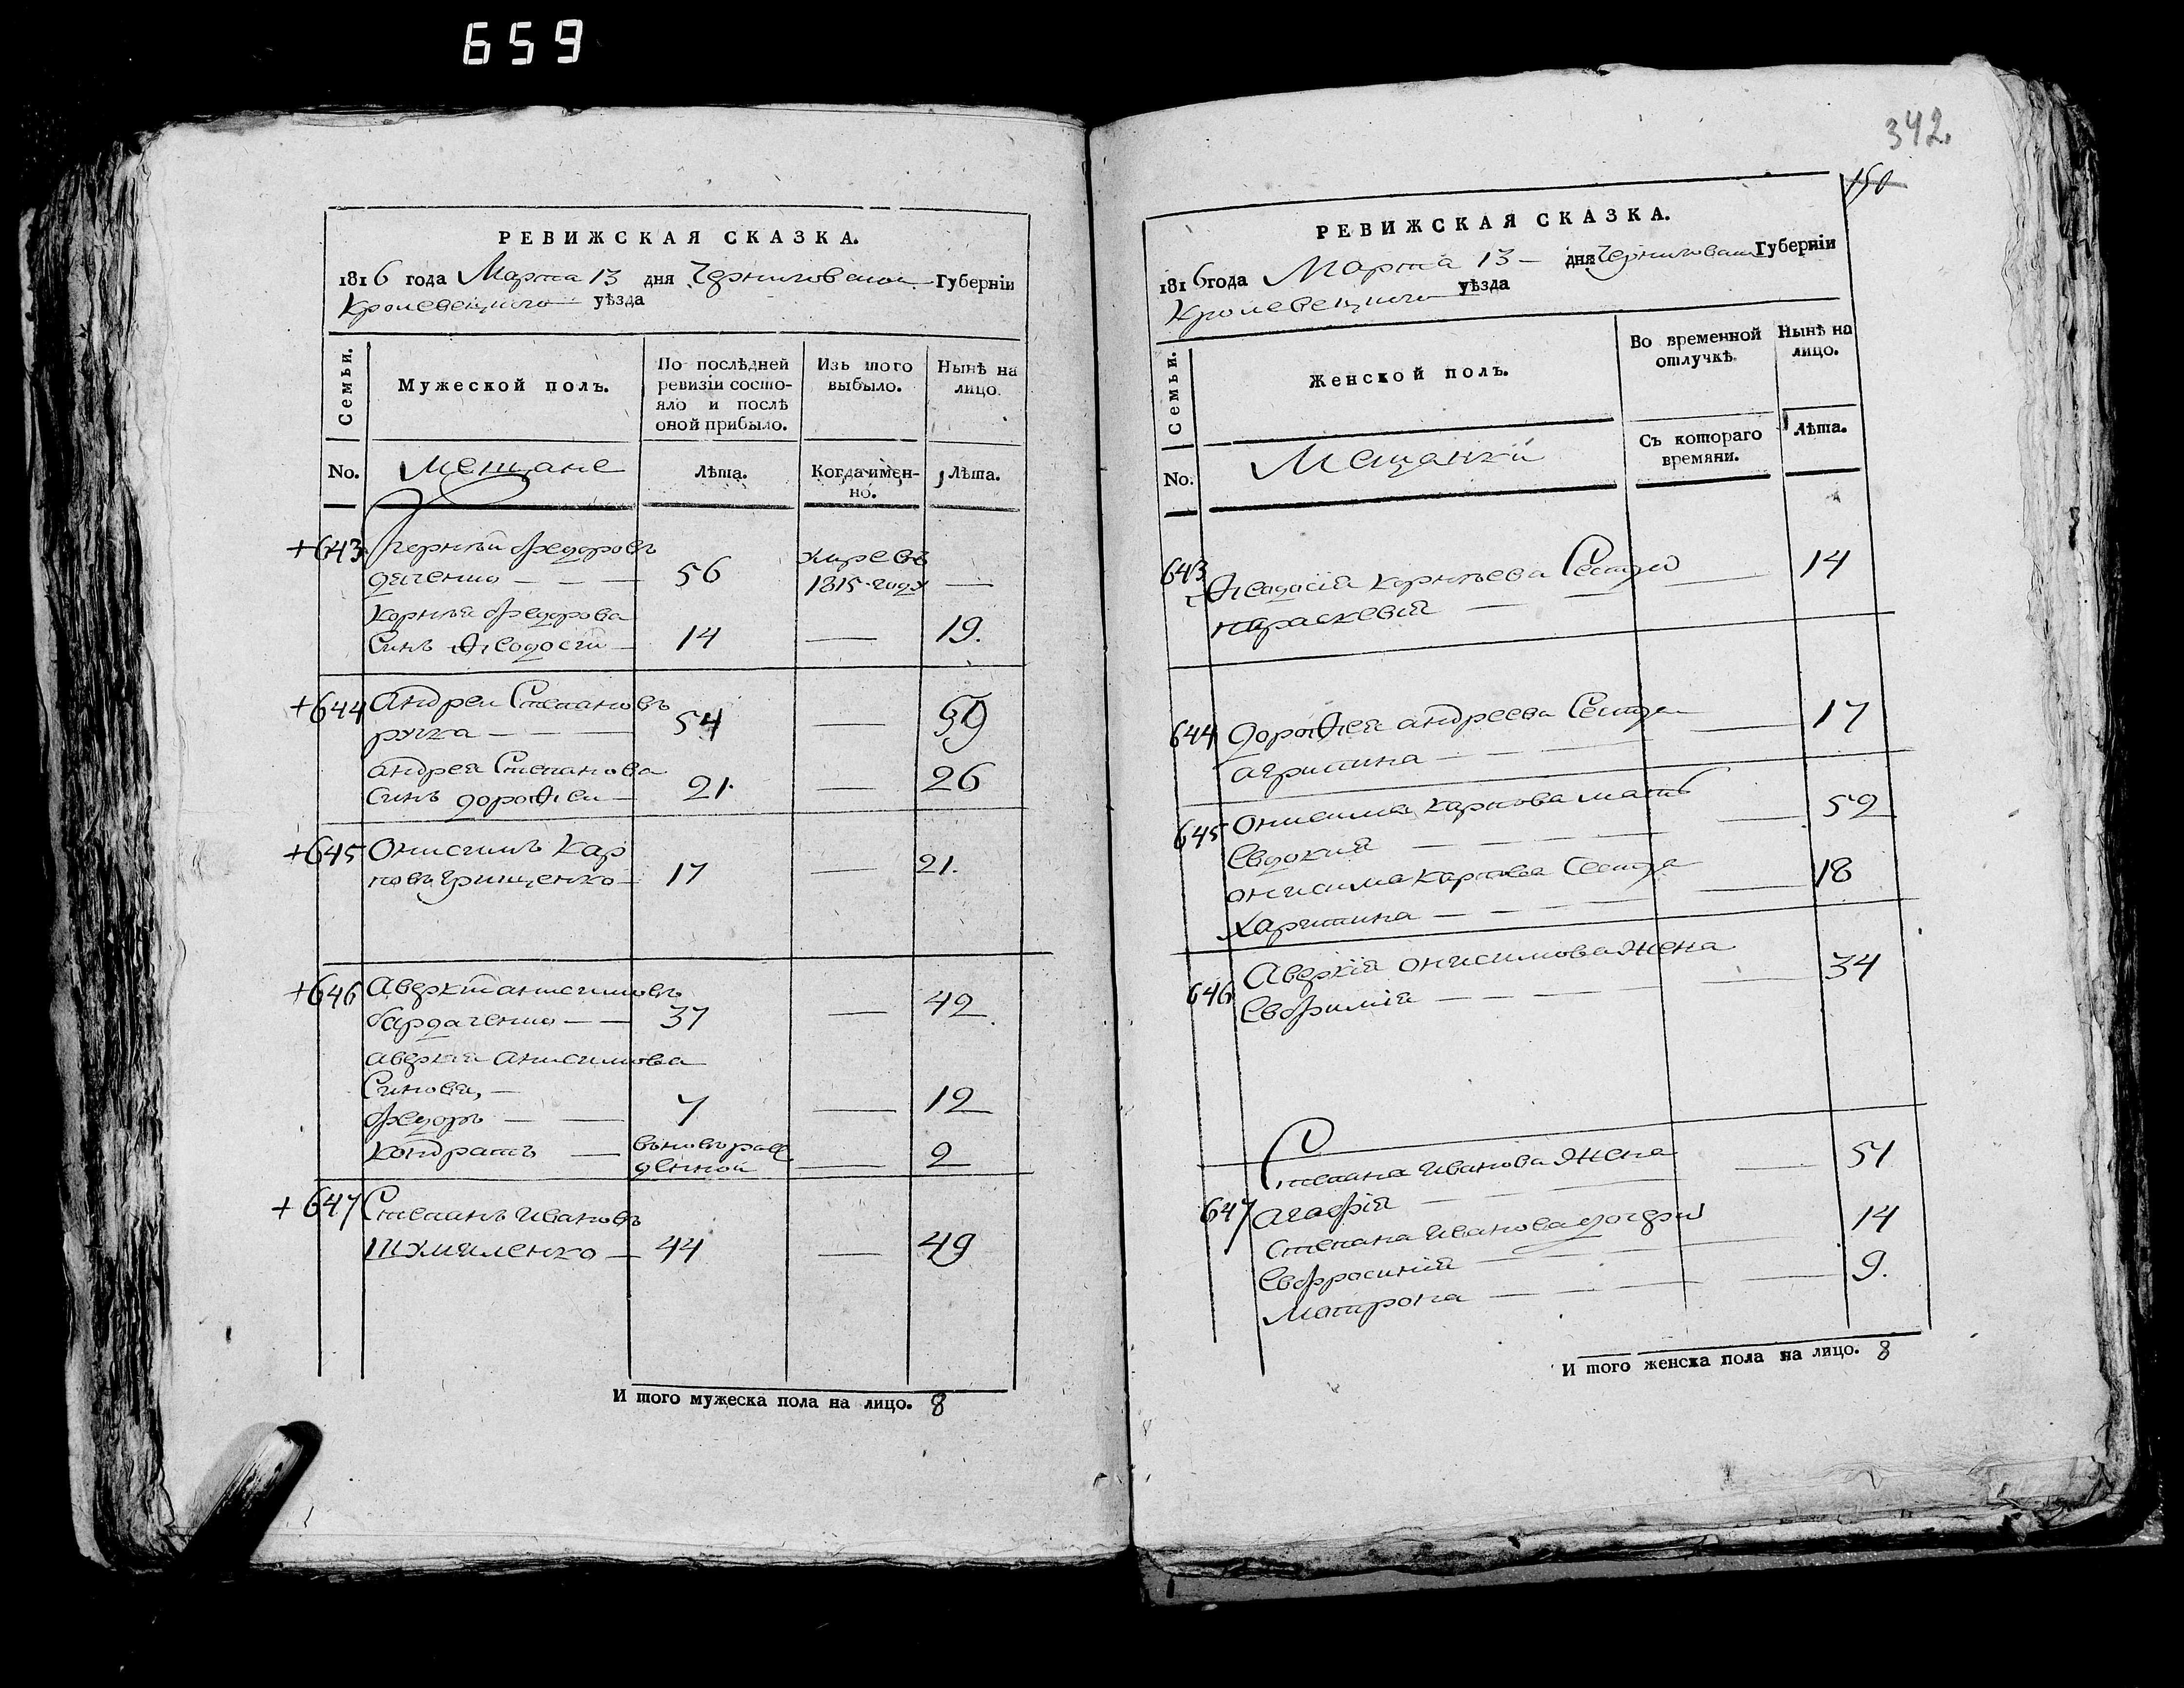 659
РЕВИЖСКАЯ СКАЗКА.
1816 года Марта 13 дня Черниговской Губерніи
Кролевецкого уѣзда
Семьи.
Мужеской полъ.
По послѣдней
ревизіи состо-
яло и послѣ
оной прибыло.
Изъ того
выбыло.
Нынѣ на
лицо.
No.
Мещане
Лѣта.
Когда имен-
но.
Лѣта.
+643 Федоровъ
56
1815 году —
Корнея Федорова
Синъ Ѳеодосій 14 — 19.
+644 Андрей Степановъ
54 —
Андрея Степанова
Синъ дороѳей 21. — 26
+645 Онисимъ Кар
повъ Грищенко 17 — 21.
+646 Аверкій анисимовъ
бардаченко — — 37 — 42
аверкія анисимова
Синовя, —
Федоръ — — 7 — 12
Кондратъ — — 2
+647 Степанъ Ивановъ
44 — 49
И того мужеска пола на лицо. 8
342.
150
РЕВИЖСКАЯ СКАЗКА.
1816 года Марта 13 — дня Черниговской Губерніи
Кролевецкого уѣзда
Семьи.
Женской полъ.
Во временной
отлучкѣ.
Нынѣ на
лицо.
No.
Мещанки
Съ котораго
времяни.
Лѣта.
643 Ѳеодосія Корнѣева Сестра — 14
Параскевія — —
644 дороѳея андреева Сестра — 17
агрипина — —
645 Онисима Карпова мать — 52
Евдокия — — —
онисима Карпова Сестра — 18
Харитина — — —
646 Аверкія онисимова Жена — 34
Евфимія — — — —
647 Степана Иванова Жена — 51
Агафія — —
Степана Иванова дочери
Евфросинія — — 14
Матрона — — — 9.
И того женска пола на лицо. 8